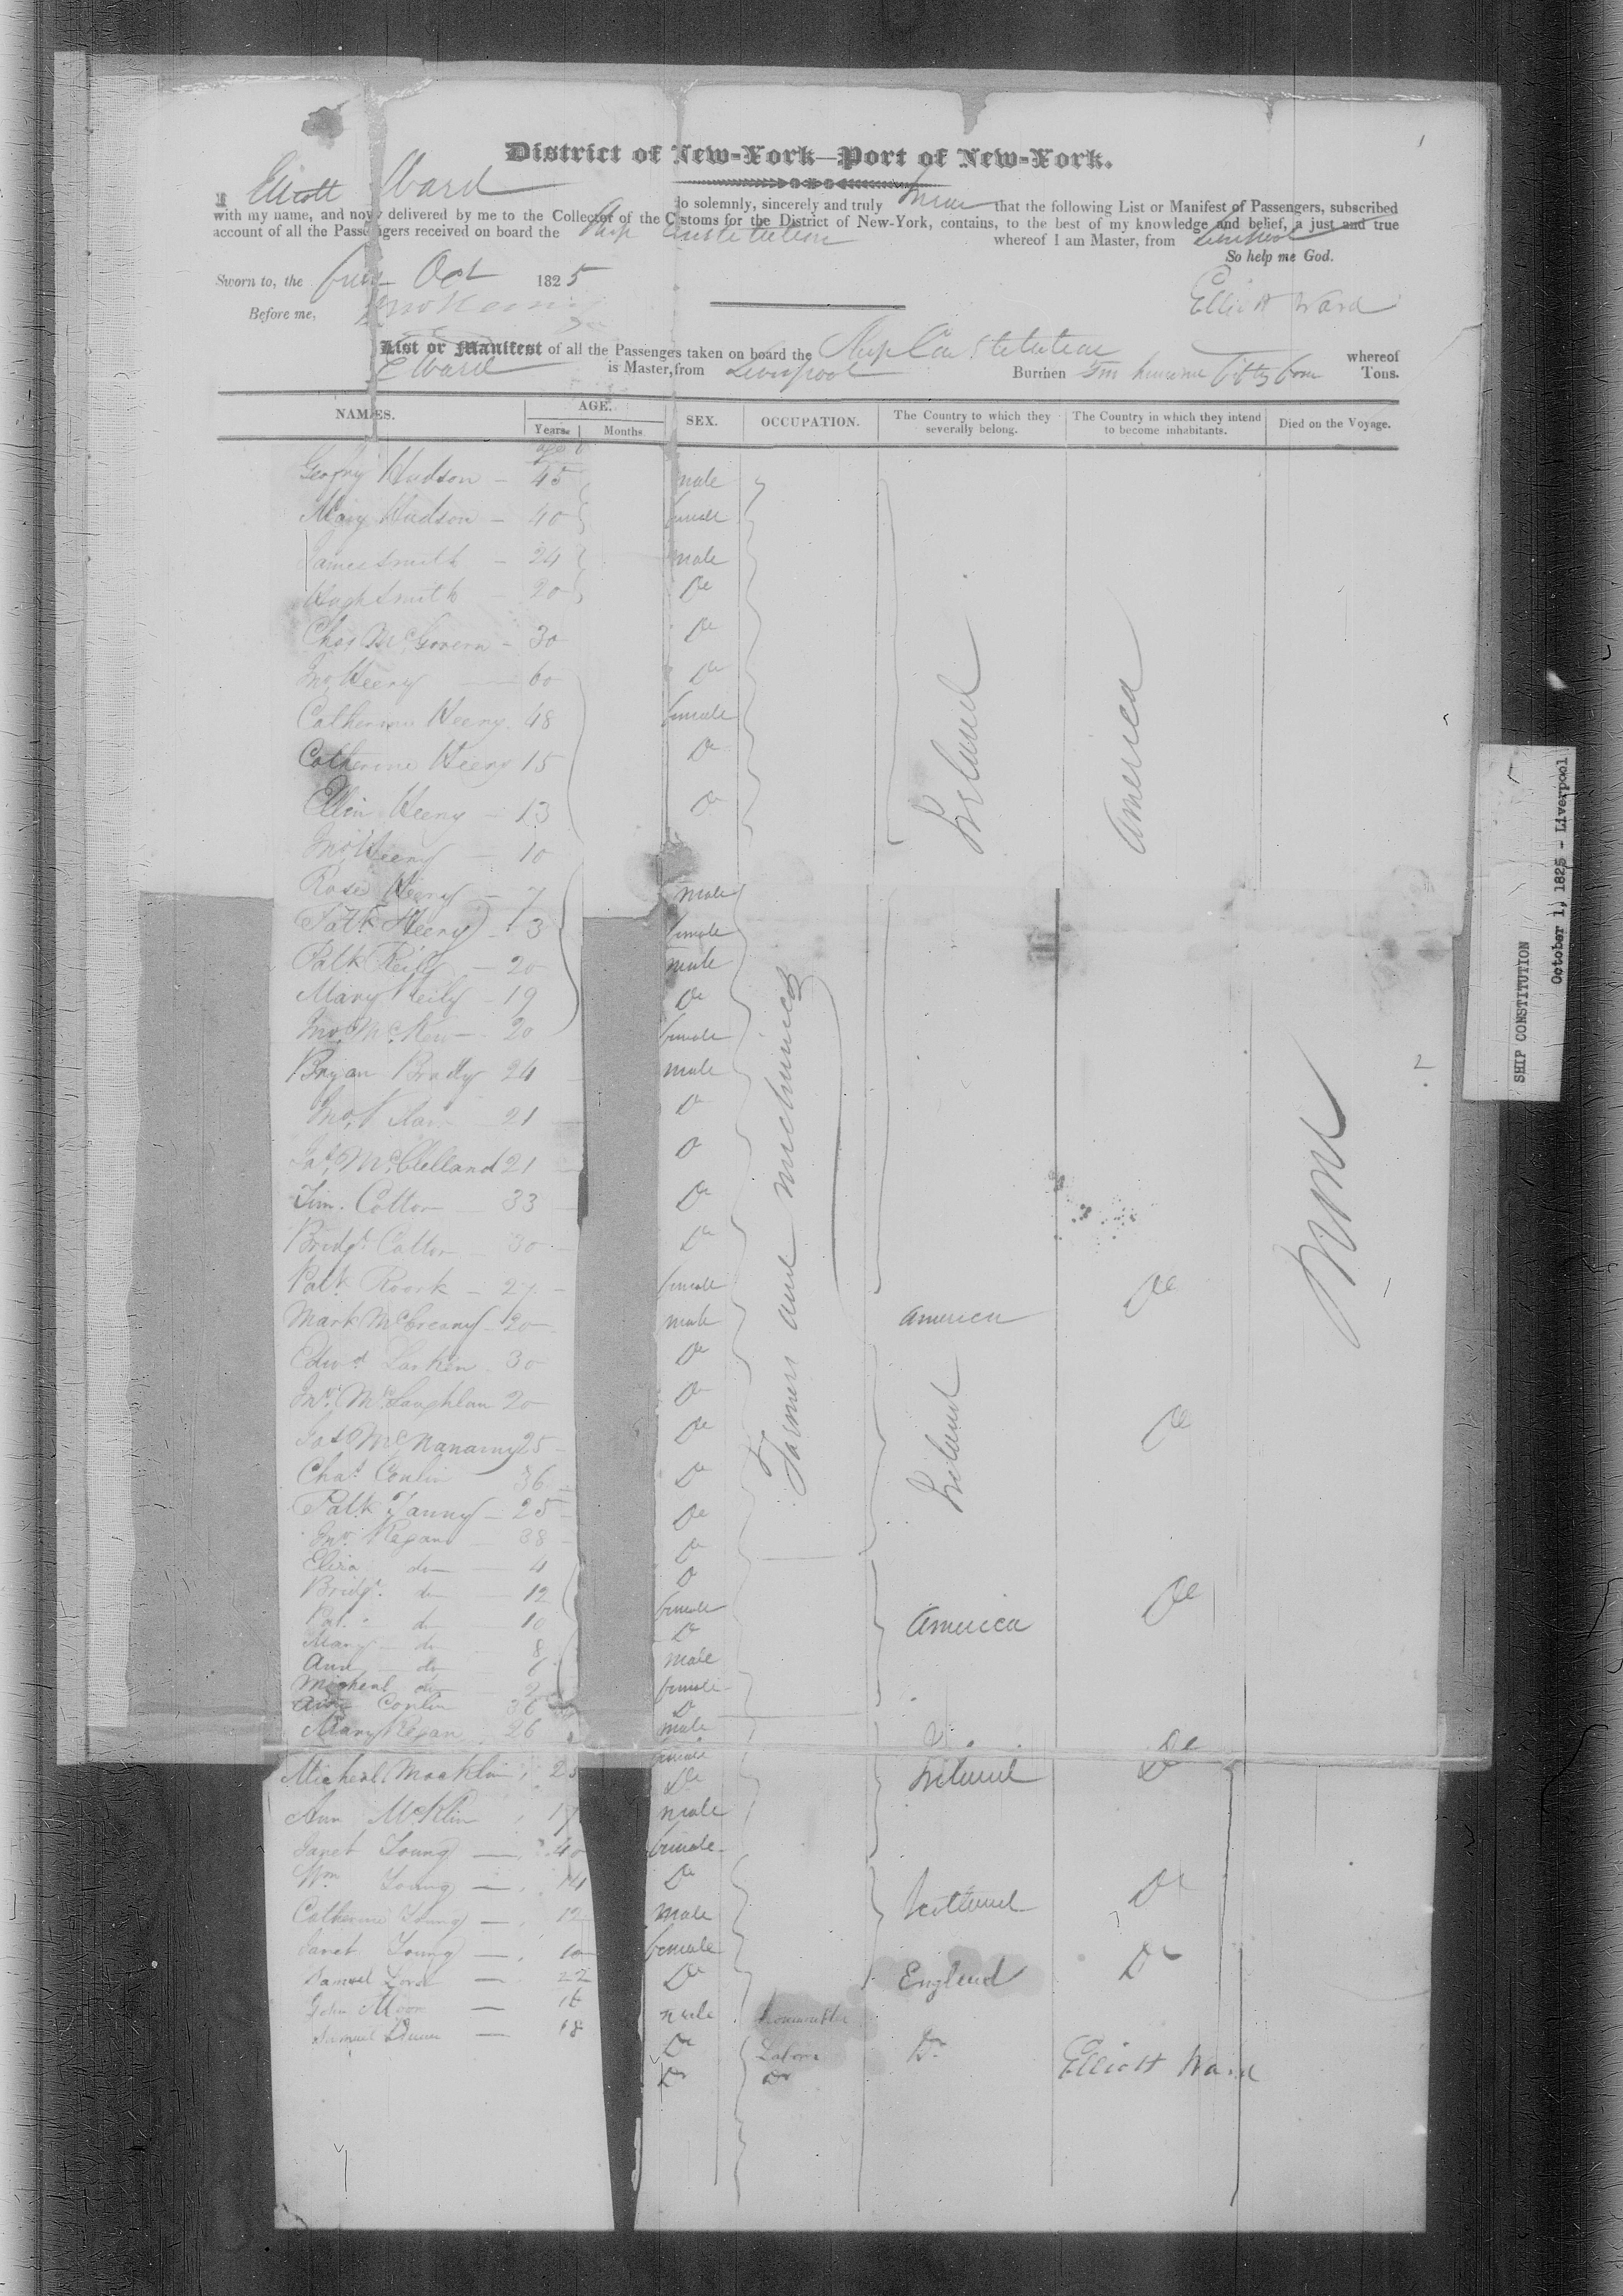 District of New-York—Port of New-York.
I Elliott Ward do solemnly, sincerely and truly swear that the following List or Manifest of Passengers, subscribed
with my name, and now delivered by me to the Collector of the Customs for the District of New-York, contains, to the best of my knowledge and belief, a just and true
account of all the Passengers received on board the Ship Constitution whereof I am Master, from Liverpool
So help me God.
Sworn to, the Oct 1825
Elliott Ward
Before me,
List or Manifest of all the Passenges taken on board the Ship Constitution whereof
E Ward is Master, from Liverpool Burthen fifty four Tons.
NAMES. AGE. SEX. OCCUPATION. The Country to which they severally belong. The Country in which they intend to become inhabitants. Died on the Voyage.
Years. Months.
Hudson - 45 male
Mary Hudson - 40 female
James Smith - 24 male
Hugh Smith - 20 Do
Chas McGovern - 30 Do
Jno Heeny 60 Do
Catherine Heeny 48 female
Catherine Heeny 15 Do
Ellin Heeny - 13 Do
Jno Heeny - 10
Rose Heeny - 7 male
Patk Heeny - 3 female
Patk Reily - 20 male
Mary Reily - 19 Do
Jno 20 female
Bryan Brady 24 male
Jno 21 Do
Jas McClelland 21 Do
Tim. Cotton 33 Do
Bridgt Cotton 30 Do
Patk Roork - 27 female
Mark 20 male
Edwd Larkin - 30 Do
Jno McLaughlan 20 Do
Jas McNanamy 25 Do
Chas Conlin 36 Do
Patk Fanny - 25 Do
Jno Regan 38 Do
Eliza do 4 Do
Bridgt do 12 female
Pat. do 10 Do
Mary do 8 male
Ann do 6 female
Micheal do 2 Do
Ann Conlin 36 male
Mary Regan 26 female
Micheal Macklin 25 Do
Ann McKlin 17 male
Janet Young 40 female
Wm Young 14 Do
Catherine Young 12 male
Janet Young 10 female
Samuel Lord 22 Do
John Moon 16 male
Samuel 18 Do
Do
Farmers and mechanics
Labor
Do
Ireland
America
America Do
Ireland Do
America Do
Ireland Do
Do
Scotland Do
England Do
Do
None
Elliott Ward
1
2
SHIP CONSTITUTION
October 1, 1825 - Liverpool